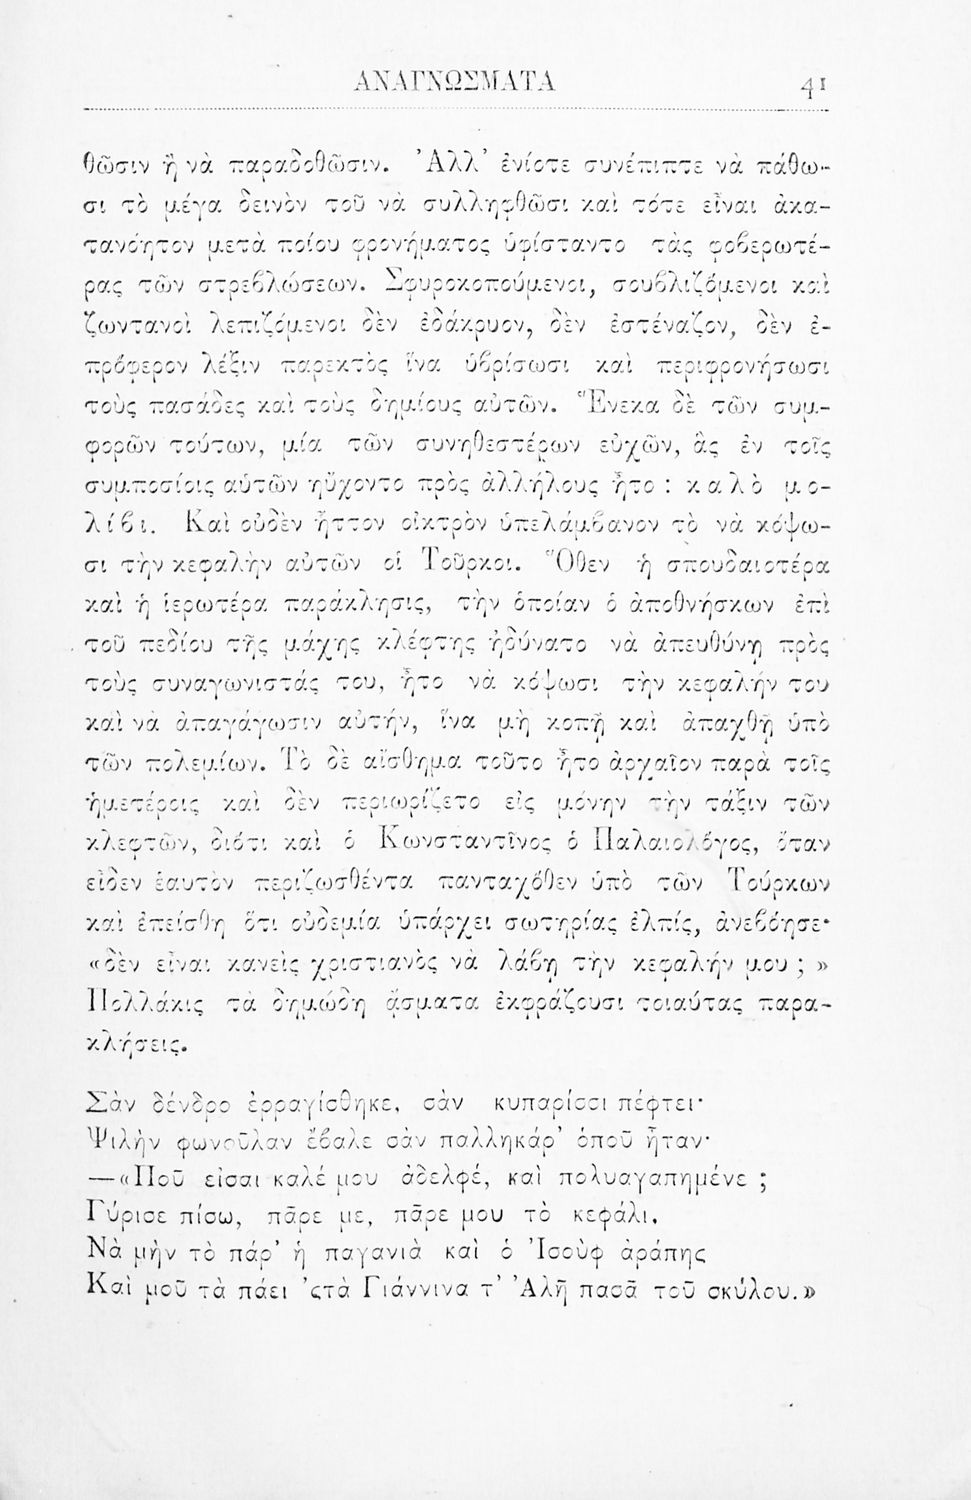 ΑΝΑΓΝΩΣΜΑΤΑ 41
θῶσιν ἢ νὰ παραδοθῶσιν. Ἀλλ' ἐνίοτε συνέπιπτε νὰ πάθω-
σι τὸ μέγα δεινὸν τοῦ νὰ συλληφθῶσι καὶ τότε εἶναι ἀκα-
τανόητον μετὰ ποίου φρονήματος ὑφίσταντο τὰς φοβερωτέ-
ρας τῶν στρεβλώσεων. Σφυροκοπούμενοι, σουβλιζόμενοι καὶ
ζωντανοὶ λεπιζόμενοι δὲν ἐδάκρυον, δὲν ἐστέναζον, δὲν ἐ-
πρόφερον λέξιν παρεκτὸς ἵνα ὑβρίσωσι καὶ περιφρονήσωσι
τοὺς πασάδες καὶ τοὺς δημίους αὐτῶν. Ἕνεκα δὲ τῶν συμ-
φορῶν τούτων, μία τῶν συνηθεστέρων εὐχῶν, ἃς ἐν τοῖς
συμποσίοις αὐτῶν ηὔχοντο πρὸς ἀλλήλους ἦτο : καλὸ μο-
λίβι. Καὶ οὐδὲν ἧττον οἰκτρὸν ὑπελάμβανον τὸ νὰ κόψω-
σι τὴν κεφαλὴν αὐτῶν οἱ Τοῦρκοι. Ὅθεν ἡ σπουδαιοτέρα
καὶ ἡ ἱερωτέρα παράκλησις, τὴν ὁποίαν ὁ ἀποθνήσκων ἐπὶ
τοῦ πεδίου τῆς μάχης κλέφτης ἠδύνατο νὰ ἀπευθύνῃ πρὸς
τοὺς συναγωνιστάς του, ἦτο νὰ κόψωσι τὴν κεφαλήν του
καὶ νὰ ἀπαγάγωσιν αὐτήν, ἵνα μὴ κοπῇ καὶ ἀπαχθῇ ὑπὸ
τῶν πολεμίων. Τὸ δὲ αἴσθημα τοῦτο ἦτο ἀρχαῖον παρὰ τοῖς
ἡμετέροις καὶ δὲν περιωρίζετο εἰς μόνην τὴν τάξιν τῶν
κλεφτῶν, διότι καὶ ὁ Κωνσταντῖνος ὁ Παλαιολόγος, ὅταν
εἶδεν ἑαυτὸν περιζωσθέντα πανταχόθεν ὑπὸ τῶν Τούρκων
καὶ ἐπείσθη ὅτι οὐδεμία ὑπάρχει σωτηρίας ἐλπίς, ἀνεβόησε·
«δὲν εἶναι κανεὶς χριστιανὸς νὰ λάβῃ τὴν κεφαλήν μου ; »
Πολλάκις τὰ δημώδη ᾄσματα ἐκφράζουσι τοιαύτας παρα-
κλήσεις.
Σὰν δένδρο ἐρραγίσθηκε, σὰν κυπαρίσσι πέφτει·
Ψιλὴν φωνοῦλαν ἔβαλε σὰν παλληκάρ' ὁποῦ ἦταν·
—«Ποῦ εἶσαι καλέ μου ἀδελφέ, καὶ πολυαγαπημένε ;
Γύρισε πίσω, πᾶρε με, πᾶρε μου τὸ κεφάλι,
Νὰ μὴν τὸ πάρ' ἡ παγανιὰ καὶ ὁ Ἰσοὺφ ἀράπης
Καὶ μοῦ τὰ πάει 'ςτὰ Γιάννινα τ' Ἀλῆ πασᾶ τοῦ σκύλου.»